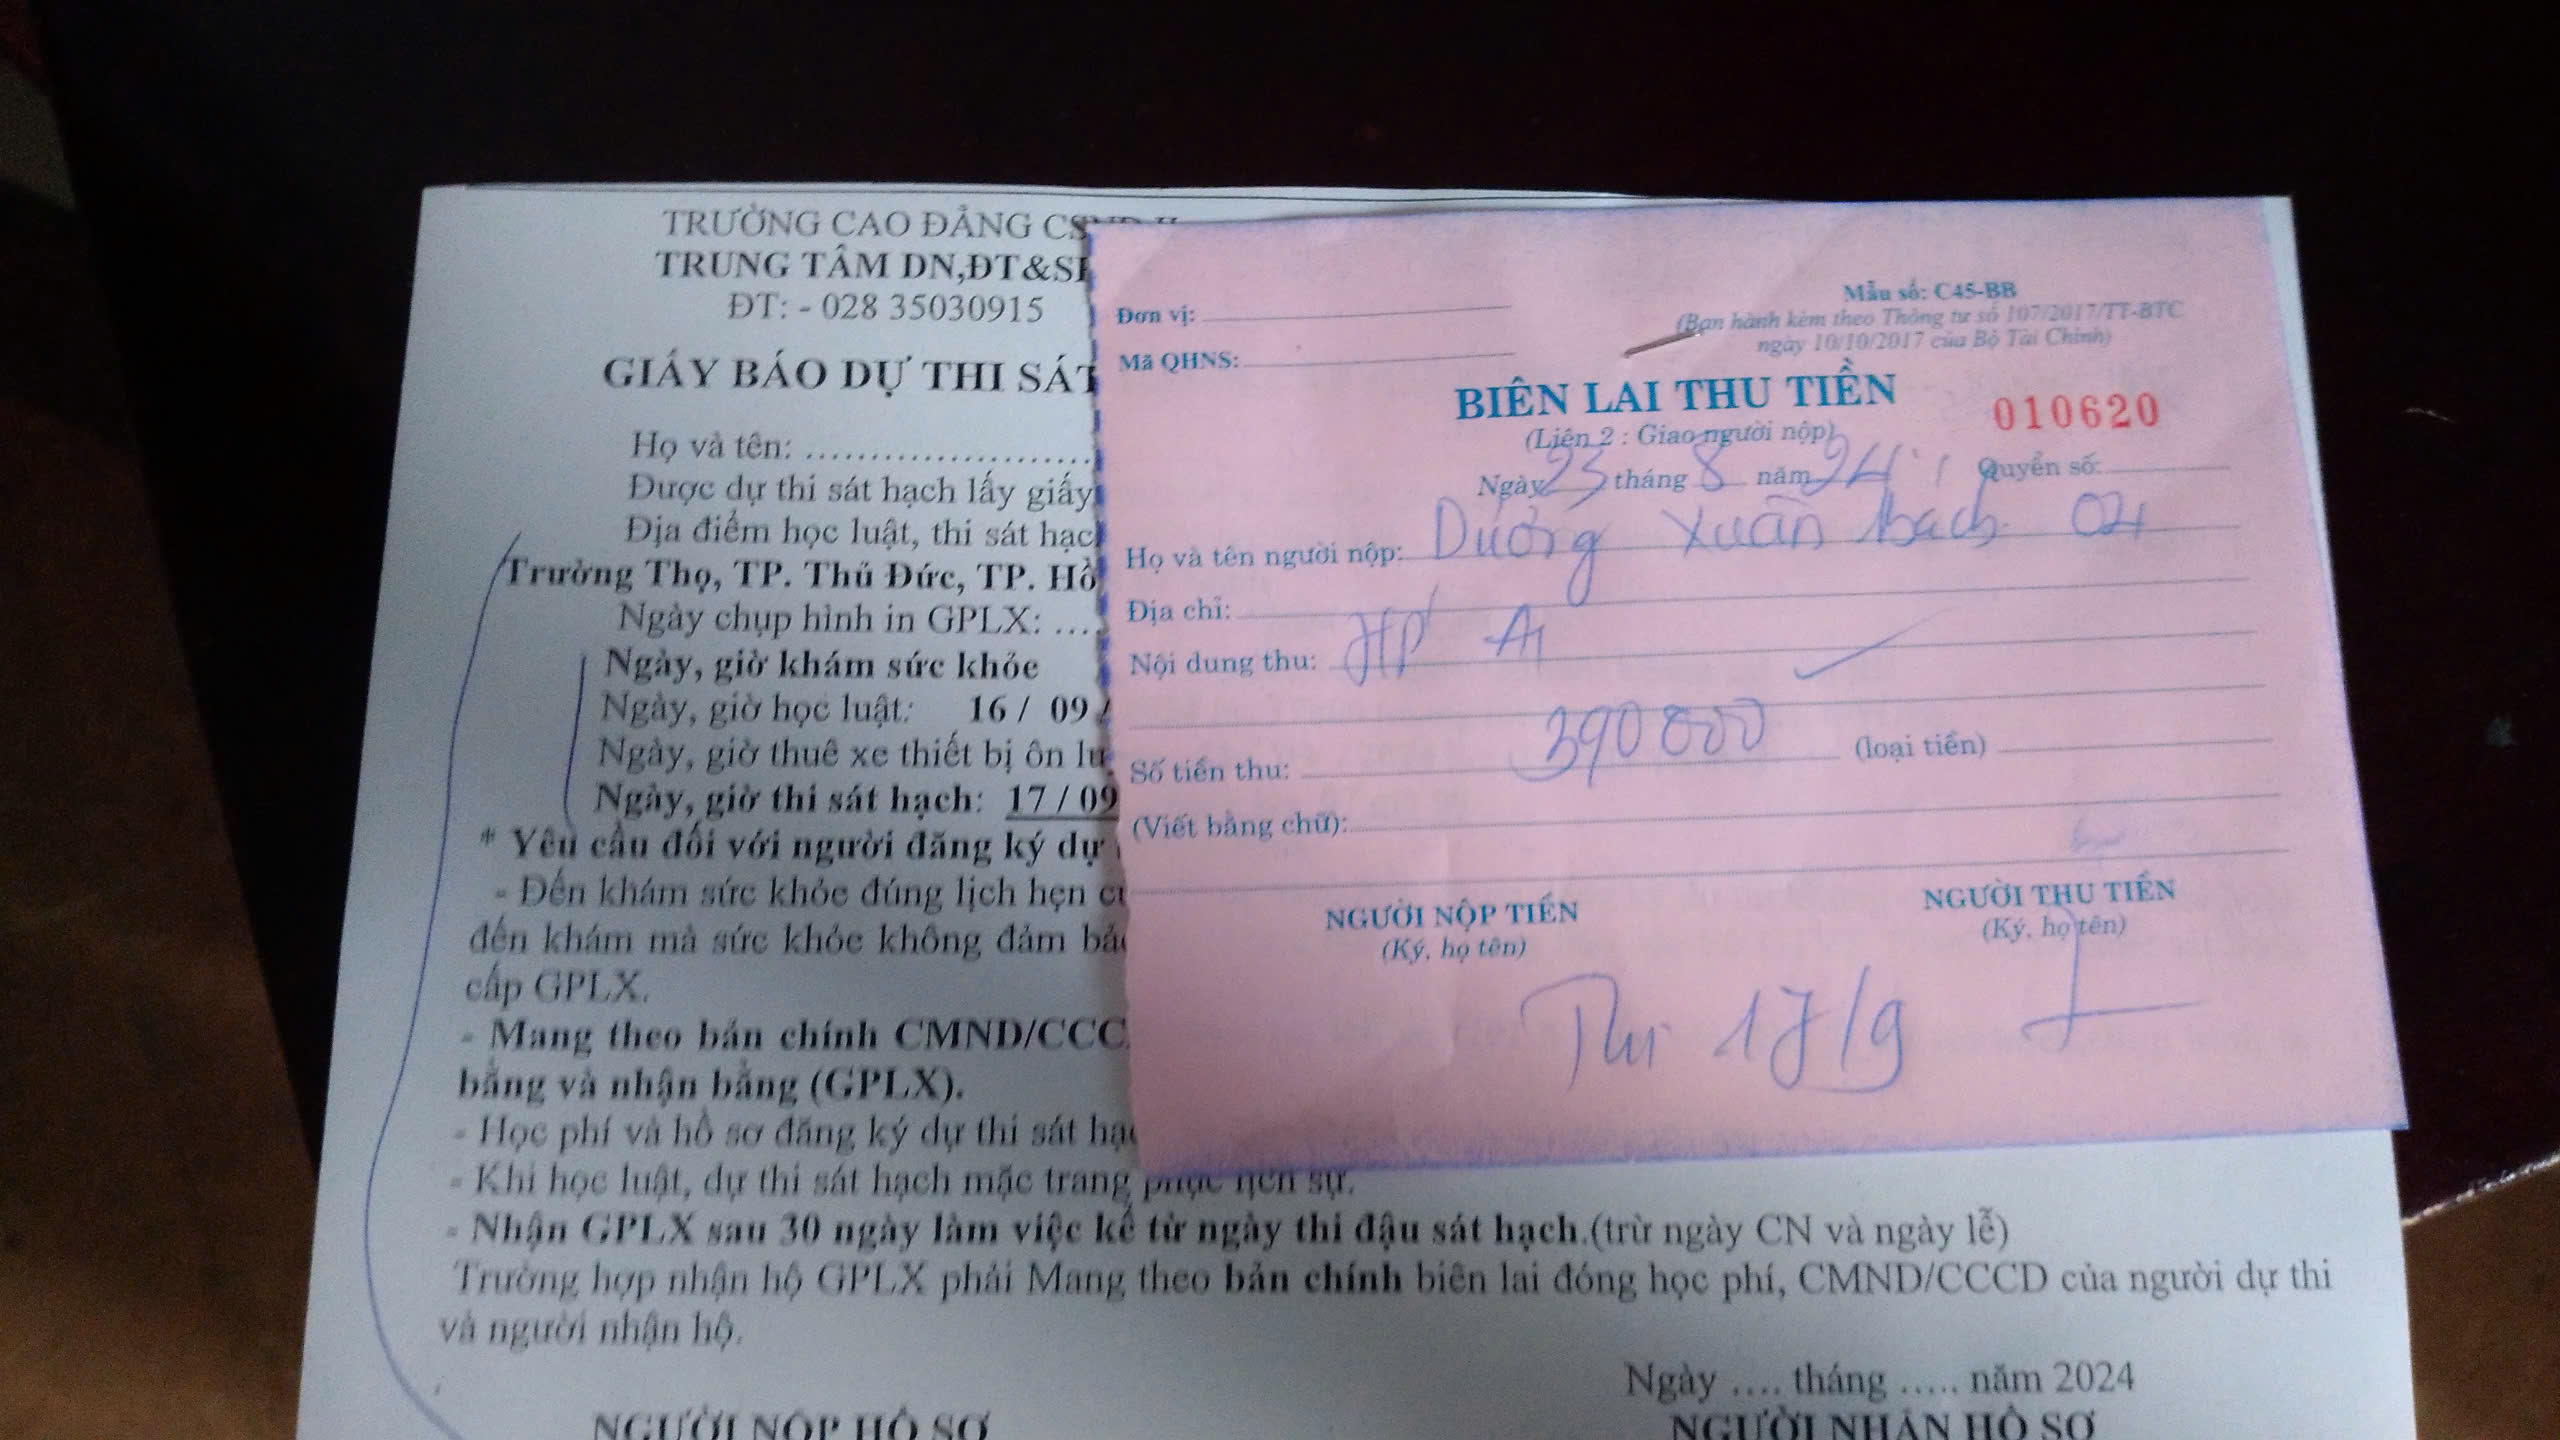 TRƯỜNG CAO ĐẲNG CSND II
TRUNG TÂM DN,ĐT&SH
ĐT: - 028 35030915
GIẤY BÁO DỰ THI SÁT
Họ và tên: ........................
Được dự thi sát hạch lấy giấy
Địa điểm học luật, thi sát hạch
Trường Thọ, TP. Thủ Đức, TP. Hồ
Ngày chụp hình in GPLX: ....
Ngày, giờ khám sức khỏe
Ngày, giờ học luật: 16 / 09 /
Ngày, giờ thuê xe thiết bị ôn
Ngày, giờ thi sát hạch: 17 / 09
* Yêu cầu đối với người đăng ký dự
- Đến khám sức khỏe đúng lịch hẹn
đến khám mà sức khỏe không đảm
cấp GPLX.
- Mang theo bản chính CMND/CCC
bằng và nhận bằng (GPLX).
- Học phí và hồ sơ đăng ký dự thi sát
- Khi học luật, dự thi sát hạch mặc trang phục lịch sự.
- Nhận GPLX sau 30 ngày làm việc kể từ ngày thi đậu sát hạch.(trừ ngày CN và ngày lễ)
Trường hợp nhận hộ GPLX phải Mang theo bản chính biên lai đóng học phí, CMND/CCCD của người dự thi
và người nhận hộ.
Ngày .... tháng ..... năm 2024
NGƯỜI NỘP HỒ SƠ
NGƯỜI NHẬN HỒ SƠ
Đơn vị:
Mã QHNS:
Mẫu số: C45-BB
(Ban hành kèm theo Thông tư số 107/2017/TT-BTC
ngày 10/10/2017 của Bộ Tài Chính)
BIÊN LAI THU TIỀN
010620
(Liên 2 : Giao người nộp)
Ngày 23 tháng 8 năm 24 Quyển số:
Họ và tên người nộp: Dương Xuân Bách 04
Địa chỉ:
Nội dung thu: HP A1
Số tiền thu: 390000 (loại tiền)
(Viết bằng chữ):
NGƯỜI NỘP TIỀN
(Ký, họ tên)
NGƯỜI THU TIỀN
(Ký, họ tên)
Thi 17/9